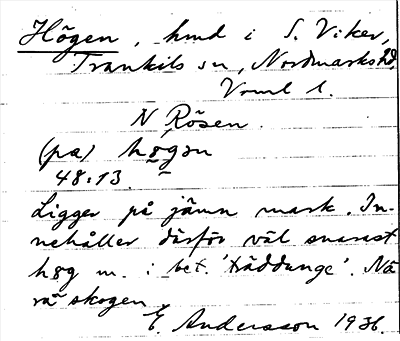 Högen, hmd i S. Viker,
Trankils sn, Nordmarks hd,
Vrml l.
N Rösen.
(pa) høgɘn
48:13.
Ligger på jämn mark. In-
nehåller därför väl snarast
høg m. i bet. 'träddunge'. Nä
ra skogen
E. Andersson 1936.